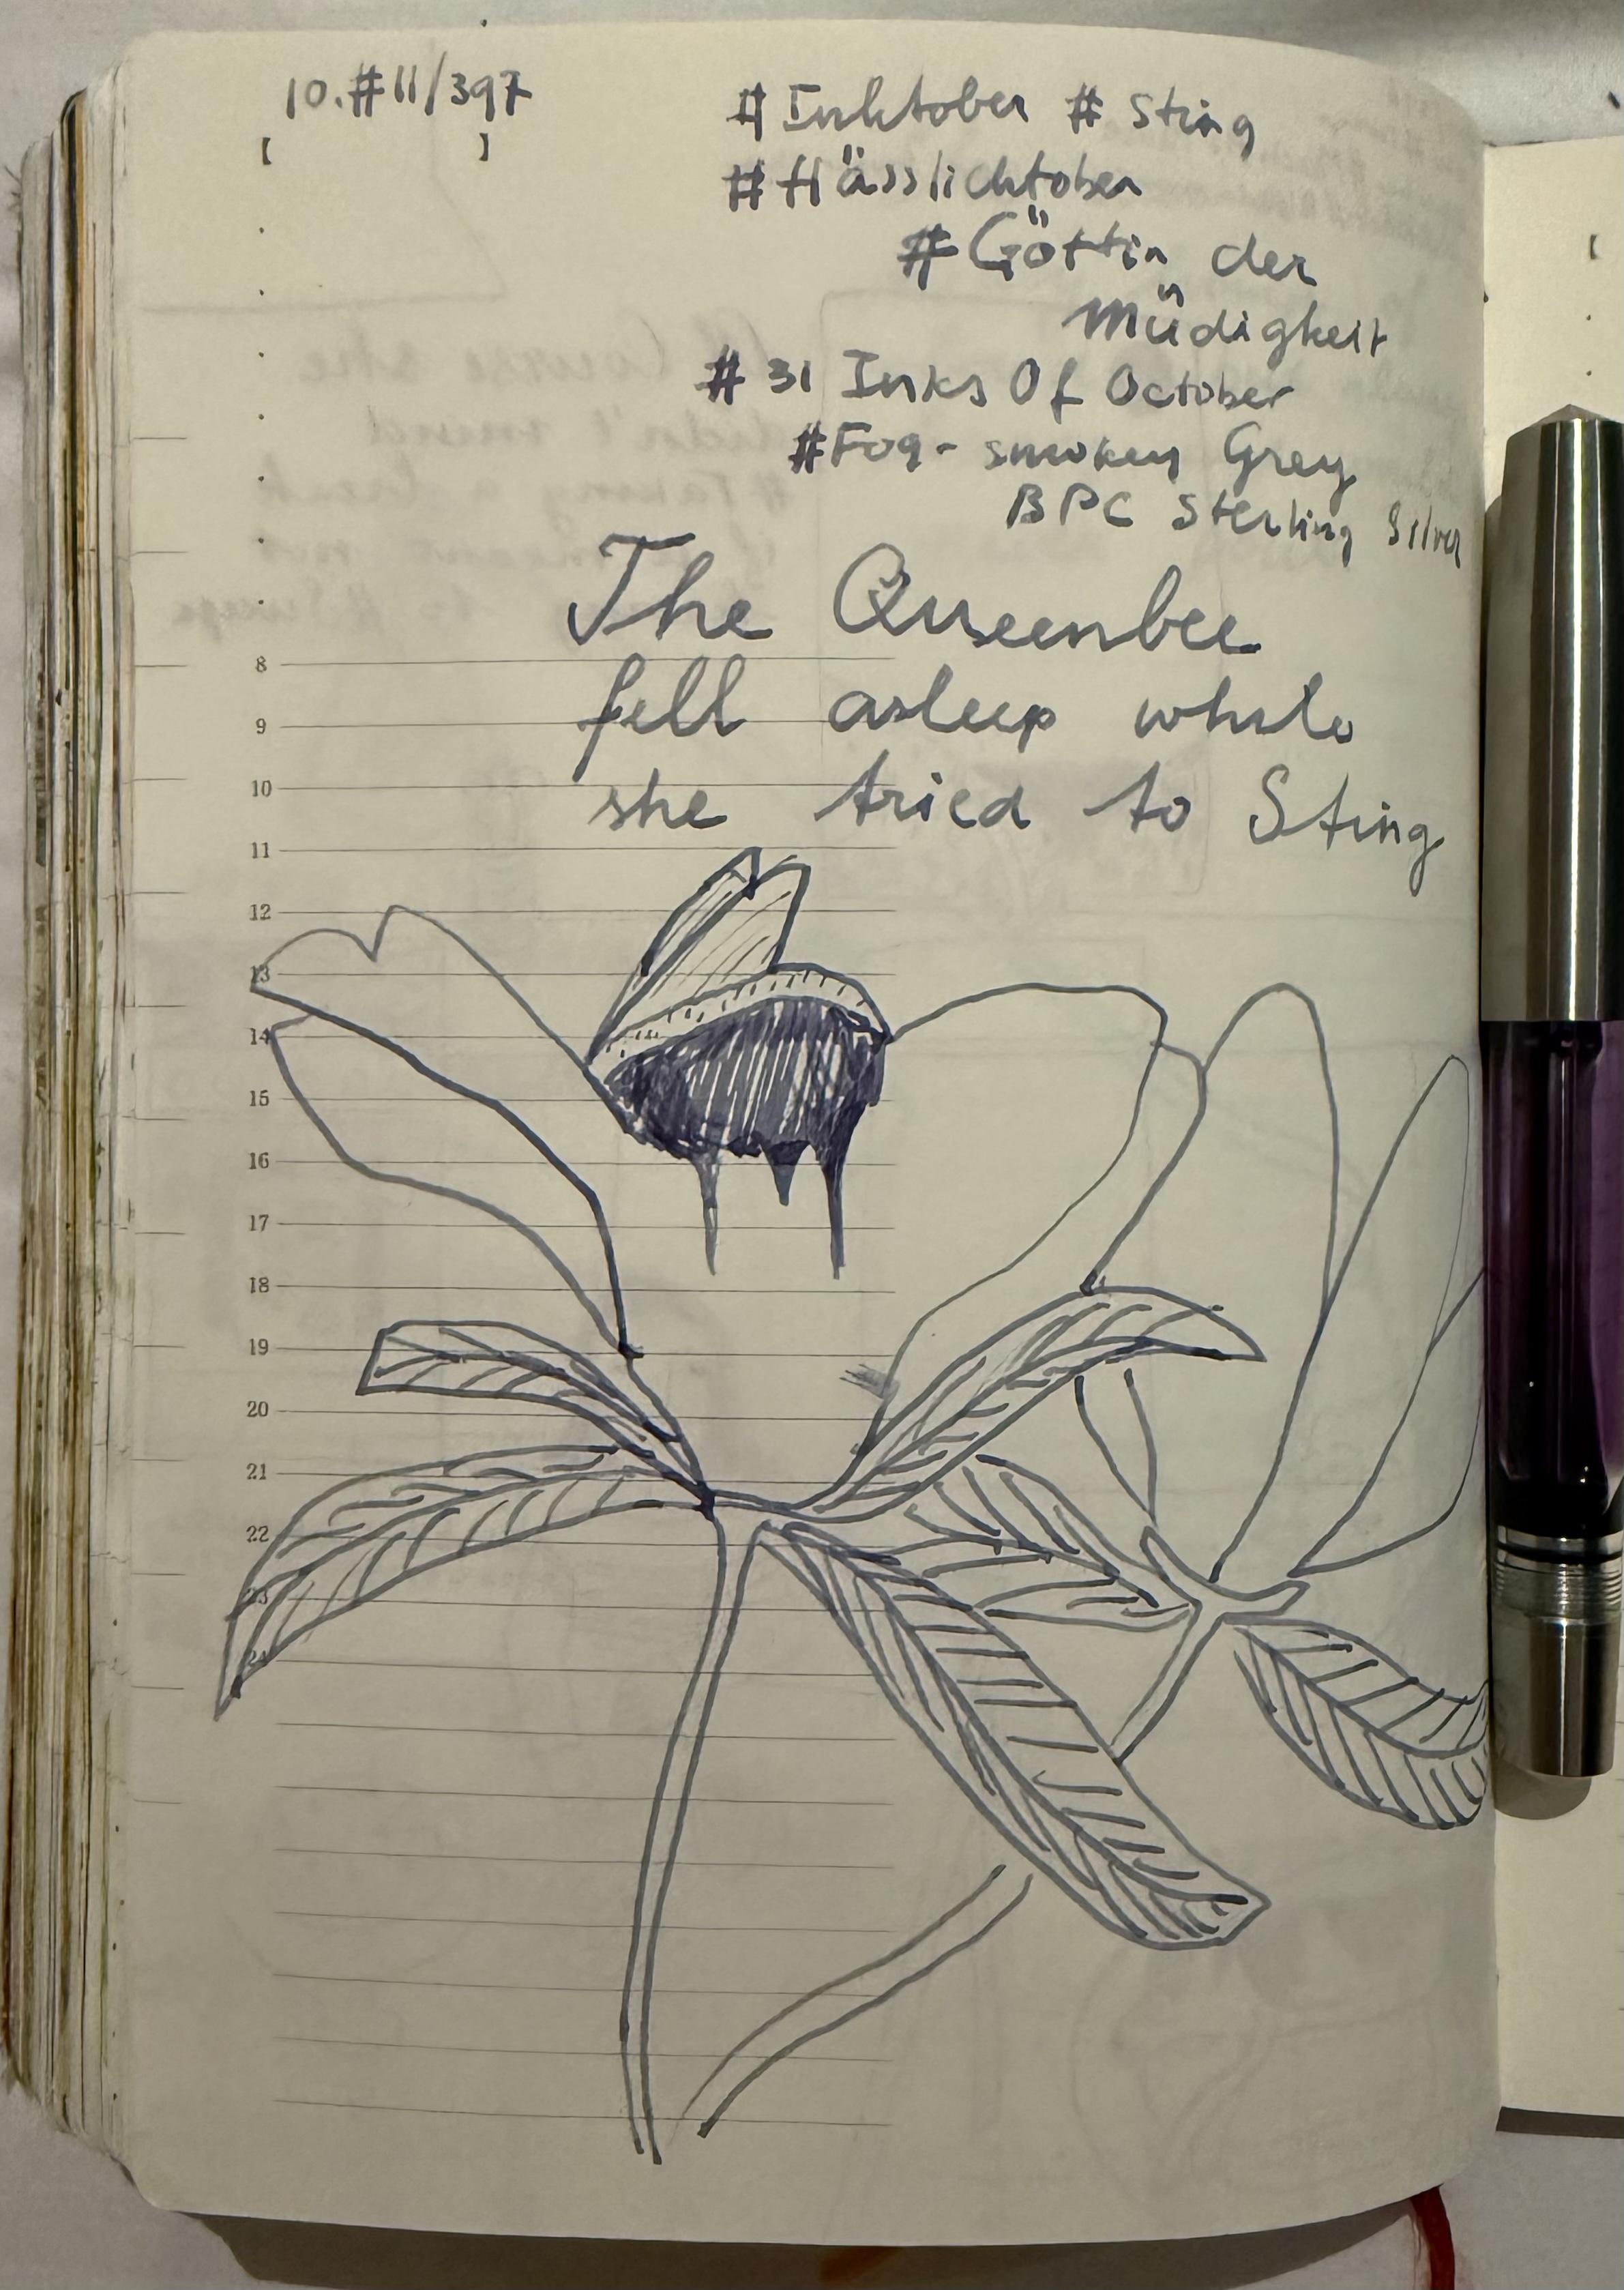 10.#11/397
[ ]
#Inktober #Sting
#Hässlichtober
#Göttin der
Müdigkeit
#31 Inks Of October
#Fog - smokey Grey
BPC Sterling Silver
The Queenbee
fell asleep while
she tried to Sting
8
9
10
11
12
13
14
15
16
17
18
19
20
21
22
23
24